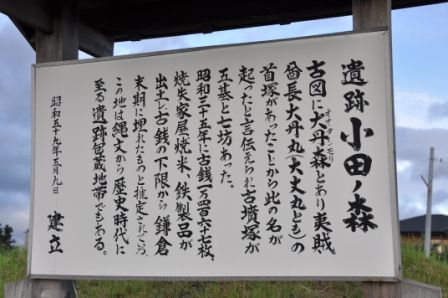 遺跡 小田ノ森
古図に大丹森とあり夷賊
オオタンモリ
酋長大丹丸(大丈丸とも)の
首塚があったことから此の名が
起ったと言伝えられ古墳塚が
五基と七坊あった。
昭和三十五年に古銭一万四百六十七枚、
焼失家屋焼米、鉄製品が
出土し古銭の下限から鎌倉
末期に埋れたものと推定されている。
この地は縄文から歴史時代に
至る遺跡包蔵地帯でもある。
昭和五十九年三月九日 建立